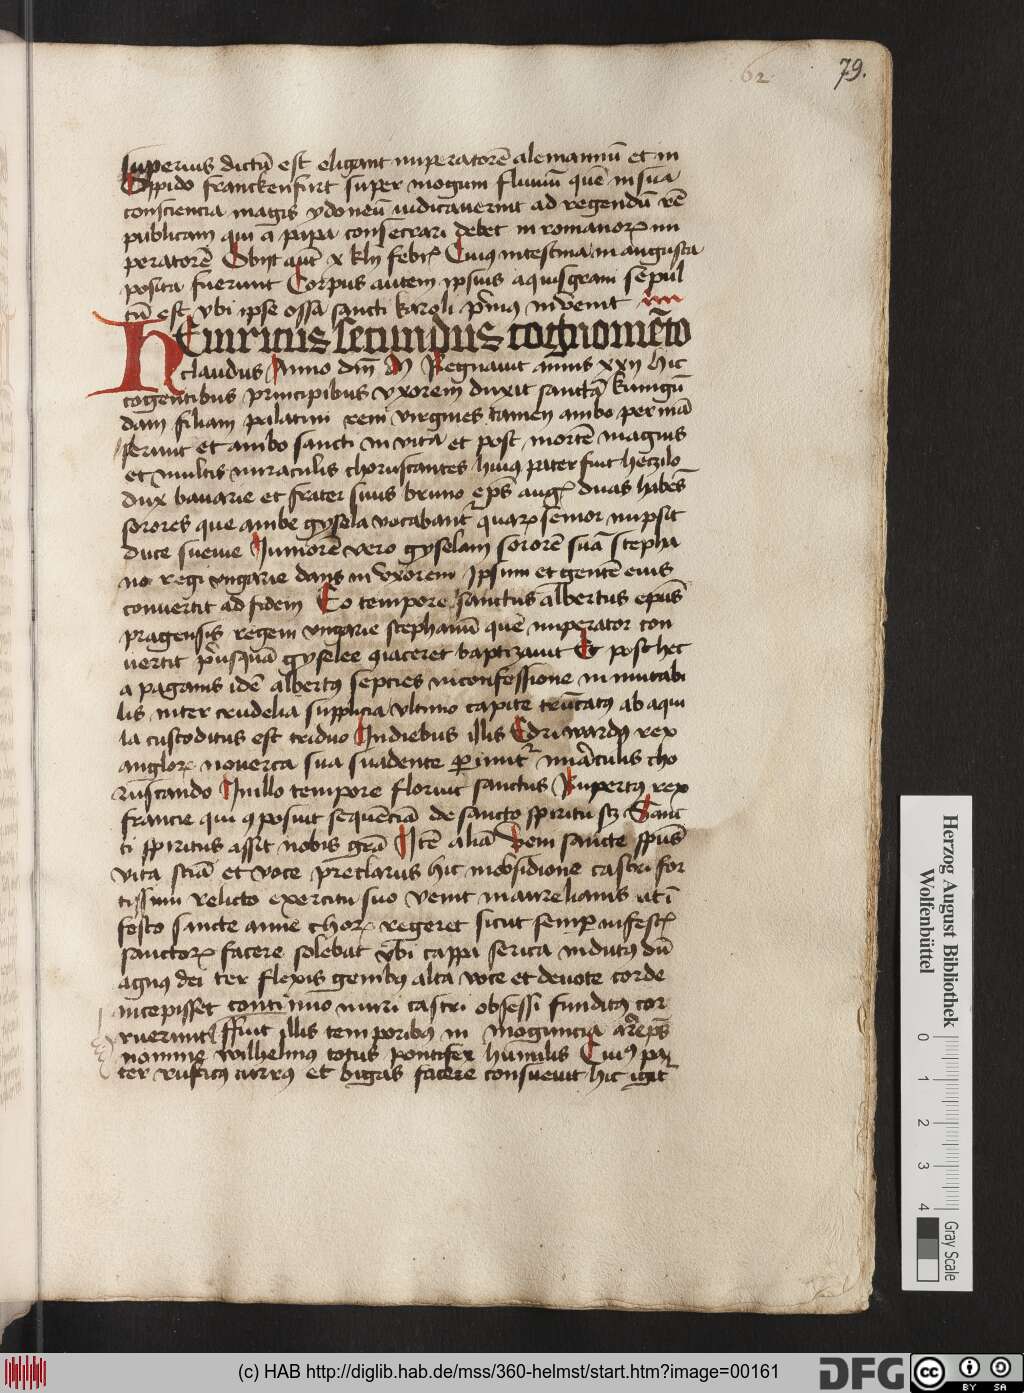 62 79.
superius dictū est eligant imperatorē alemannū et in
Oppido franckenfurt super mogum fluuiū quē in sua
consciencia magis ydoneū iudicauerint ad regendū rē
publicam qui a papa consecrari debet in romanorꝝ im
peratorē Obijt aūt x kln̄ febrꝭ Cuiꝰ intestina in augusta
posita fuerunt Corpus autem ipsius aquisgrani sepul
tū est vbi ipse ossa sancti karoli p̄mus inuenit
HEinricus secundus cognomēto
claudus Anno dn̄i M Regnauit annis xxij hic
cogentibus principibus vxorem duxit sanctā kunigū
dam filiam palatini reni virgines tamen ambo permā
serunt et ambo sancti in vita et post mortē magnis
et multis miraculis choruscantes huiꝰ pater fuit heczilo
dux bauarie et frater suus bruno ep̄s augꝭ duas habēs
sorores que ambe gysela vocabant᷑ quarꝝ senior nupsit
duce sueuie Iuniorē vero gyselam sororē suā stepha
no regi vngarie dans in vxorem Ipsum et gentē eius
conuertit ad fidem Eo tempore sanctus albertus epūs
pragensis regem vngarie stephanū quē imperator con
uertit p̄usquā gyselee ꝯiaceret baptizauit Et post hec
a paganis idē albertꝰ septies in confessione inmutabi
lis inter crudelia supplicia vltimo capite trūcatꝰ ab aqui
la custoditus est triduo In diebus illis Edriwardꝰ rex
anglorꝝ nouerca sua suadente ꝑimit᷑ miraculis cho
ruscando In illo tempore floruit sanctus Rupertꝰ rex
francie qui ꝯposuit sequēciā de sancto spiritu scꝫ Sanc
ti spiritus assit nobis grā Itē aliā Veni sancte sp̄us
vita sciā et voce preclarus hic in obsidione castri for
tissimi relicto exercitu suo venit in aurelianis ut ī
festo sancte anne chorꝝ regeret sicut semꝑ in festꝭ
sanctorꝝ facere solebat vbi cappa serica indutꝰ dū
agnus dei ter flexis genibꝰ alta voce et deuote corde
incepisset continuo muri castri obsessi funditꝰ cor
ruerunt ffuit illis temporibꝰ in moguncia arep̄s
nomine wilhelmꝰ totus pontifex humilis Cuiꝰ pa
ter rusticꝰ currꝰ et bigas facere consueuit hic igit᷑
Herzog August Bibliothek
Wolfenbüttel
0 1 2 3 4
Gray Scale
(c) HAB http://diglib.hab.de/mss/360-helmst/start.htm?image=00161
DFG
cc BY SA